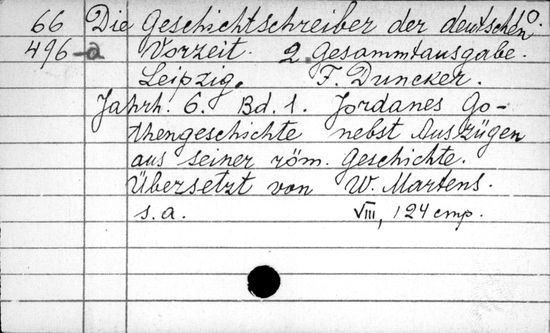 66 Die Geschichtschreiber der deutschen O.
496-a Vorzeit. 2. Gesammtausgabe.
Leipzig. F. Duncker.
Jahrh. 6. Bd. 1. Jordanes Go-
thengeschichte nebst Auszügen
aus seiner röm. Geschichte.
Übersetzt von W. Martens.
s. a. VIII, 124 стр.